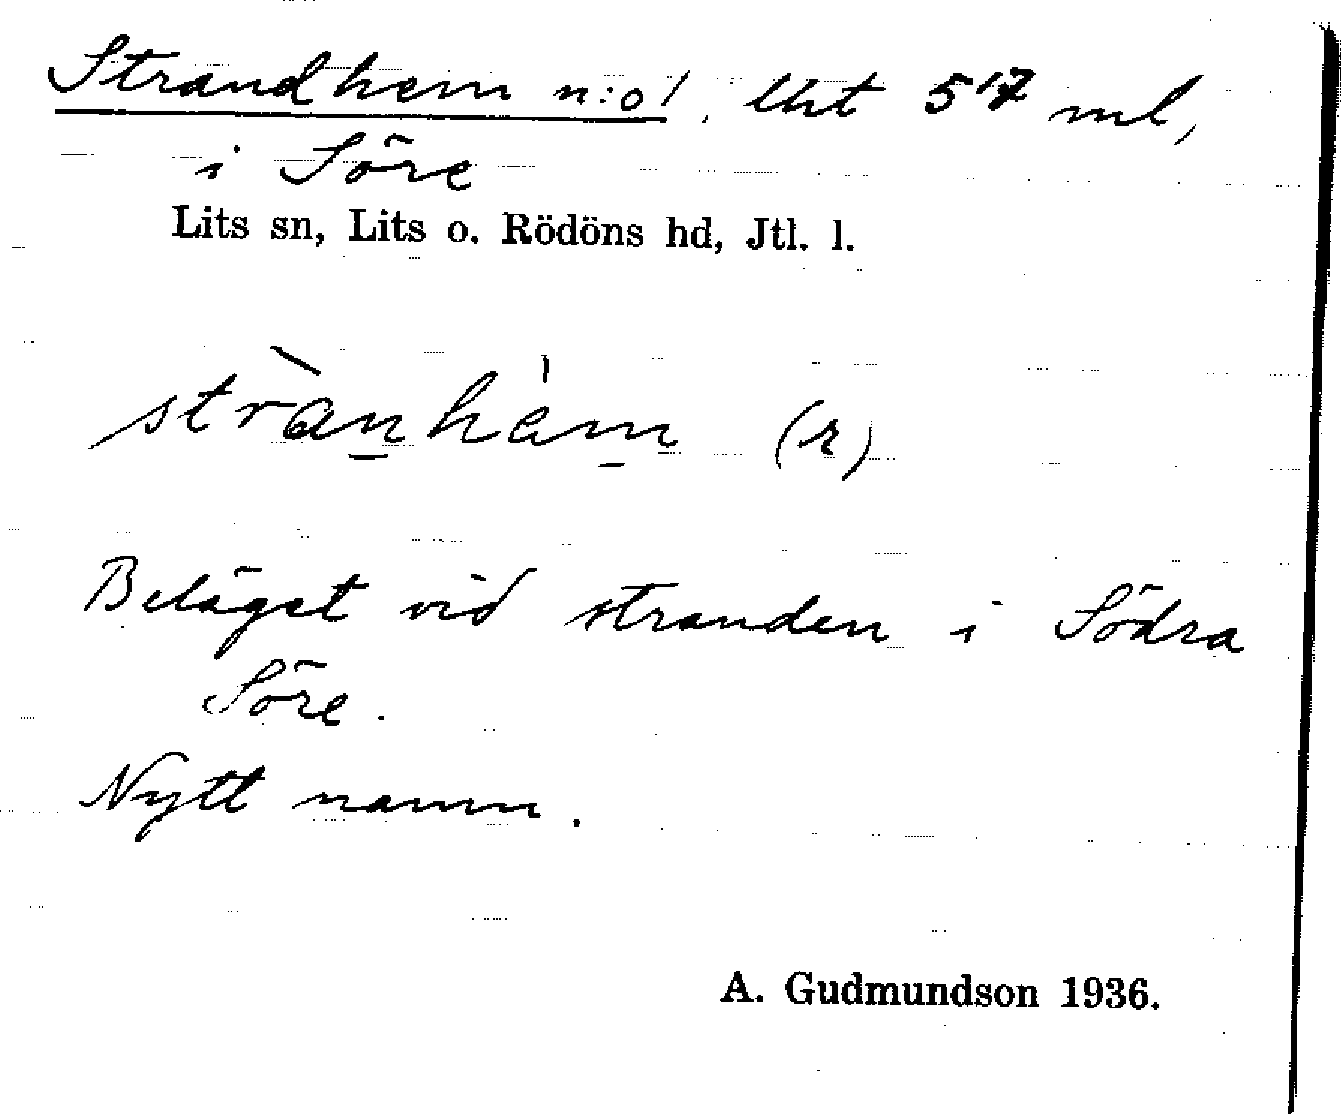 Strandhem n:o 1, lht 5¹⁷ ml,
i Söre
Lits sn, Lits o. Rödöns hd, Jtl. l.
strànhèm (r)
Beläget vid stranden i Södra
Söre.
Nytt namn.
A. Gudmundson 1936.